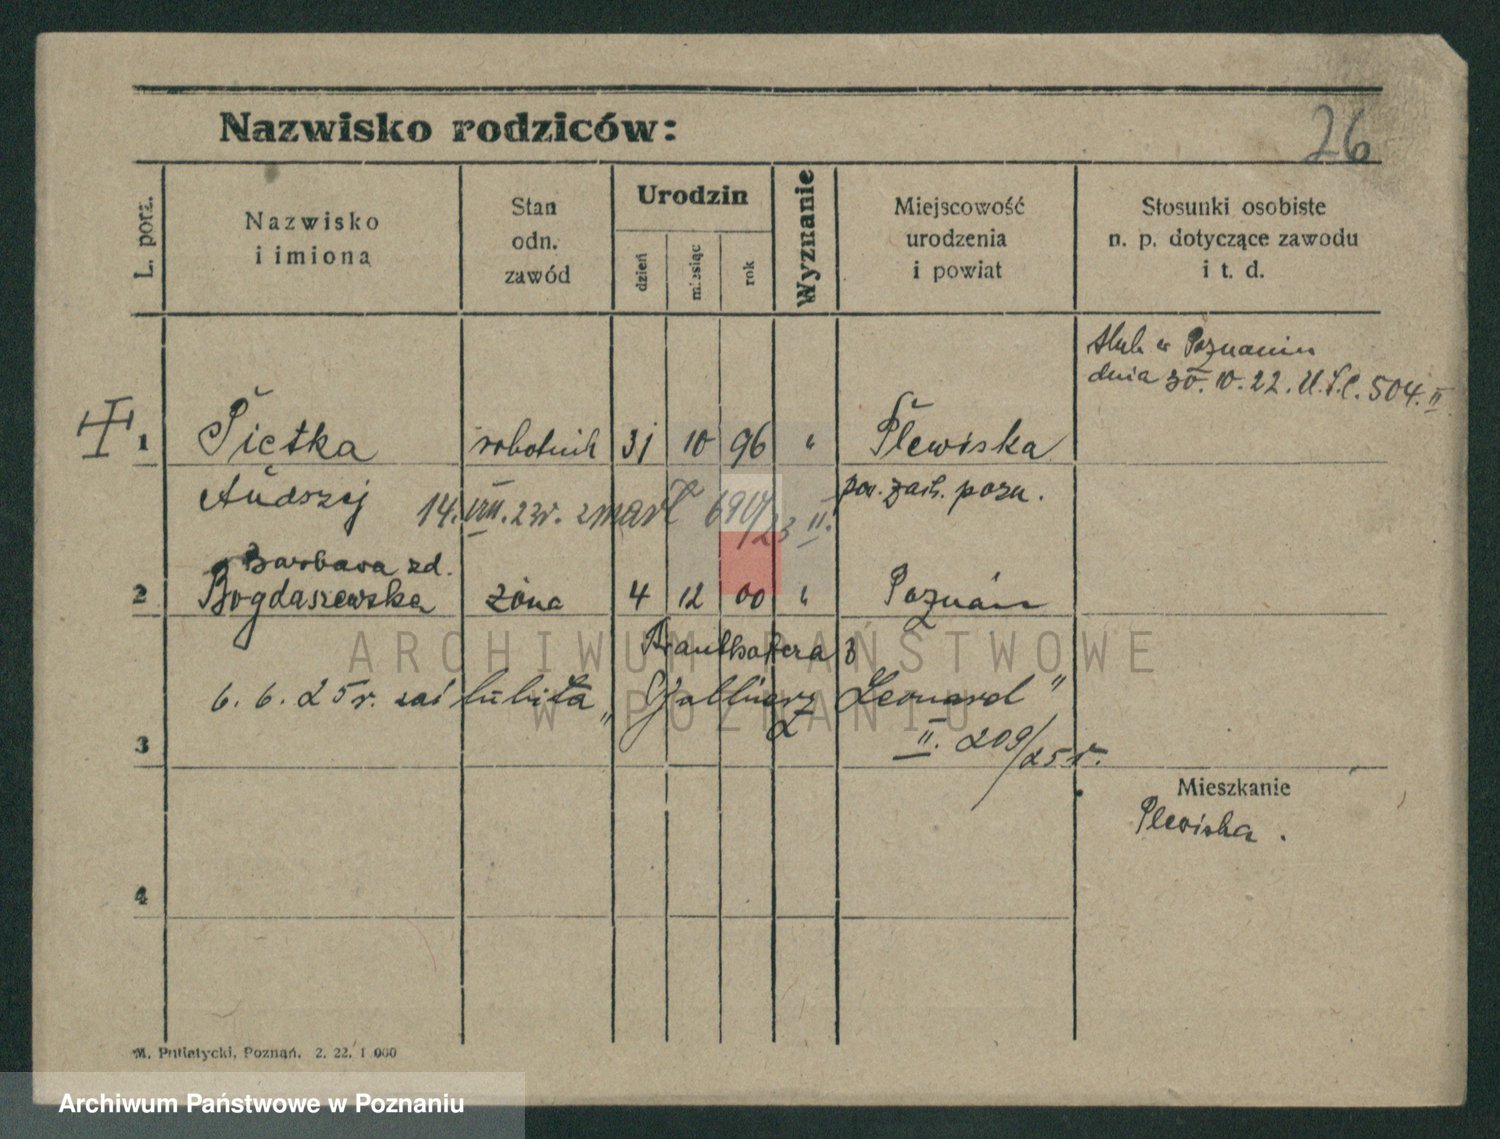 Nazwisko rodziców:
26
L. porz.
Nazwisko
i imiona
Stan
odn.
zawód
Urodzin
dzień
miesiąc
rok
Wyznanie
Miejscowość
urodzenia
i powiat
Stosunki osobiste
n. p. dotyczące zawodu
i t. d.
ślub w Poznaniu
dnia 30. 10. 22. U.S.C. 504. II
1 Piętka robotnik 31 10 96 " Plewiska
Andrzej pow. zach. pozn.
14. VIII. 23r. zmarł 690/23 II.
Barbara zd.
2 Bogdaszewska żona 4 12 00 " Poznań
3
6. 6. 25r. zaślubiła „ Leonard"
II. 209/25 r.
Mieszkanie
Plewiska.
4
M. Putiatycki, Poznań. 2. 22. 1 000
ARCHIWUM PAŃSTWOWE
W POZNANIU
Archiwum Państwowe w Poznaniu